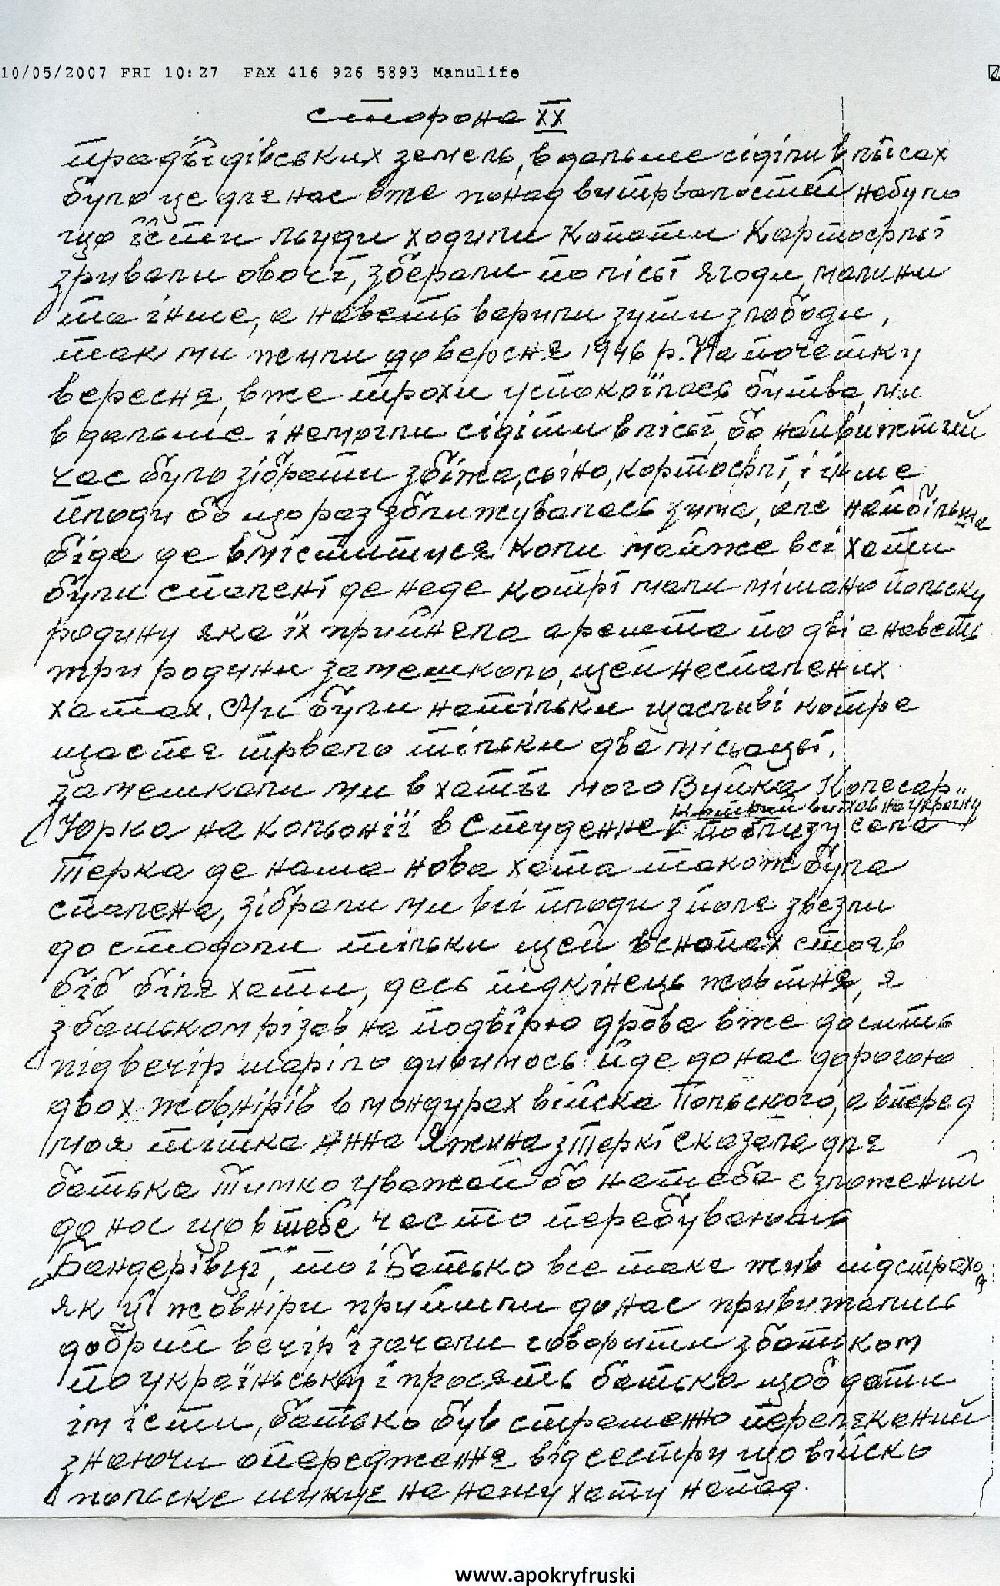 10/05/2007 FRI 10:27 FAX 416 926 5893 Manulife
сторона XX
прадьідівських земель, в дальше сіділи в лісах
було це для нас вже понад витрвалостей небуло
що їсти люди ходили копати картофлі
зривали овочі, зберали по лісі ягоди, малини
та інше, а наветь варили зупи з лободи,
так ми жили до версня 1946 р. На початку
вересня, вже трохи успокоїлось битва, ми
в дальше і немогли сідіти в лісі, бо найвижтий
час було зібрати збіжа, сьіно, картофлі, і інше
плоди бо що раз зближувалась зима, але найбільша
біда де вміститися коли майже всі хати
були спалені де неде котрі мали мішано польску
родину яка їх прийнела а решта по дві а наветь
три родини замешкало, щей неспалених
хатах. Ми були натільки щасливі котре
щастя трвало тільки два місьаці.
замешкали ми в хаті мого Вуйка Колесар
котрий виїхав на Україну
Юрка на кольонії в Студенне поблизу села
Терка де наша нова хата також була
спалена, зібрали ми всі плоди з поля звезли
до стодоли тільки щей в снопах стояв
біб біля хати, десь підкінець жовтня, я
з батьком різав на подвірю дрова вже досить
підвечір шаріло дивимось йде до нас дорогою
двох жовнірів в мондурах війска Польского, а вперед
моя тітка Анна Яжина з Теркі сказала для
батька Тимко уважай бо на тебе є зложений
до нос що в тебе часто перебувают
"Бандерівці", то і Батько все таке жив підстрахом
як ці жовніри прийшли до нас привитались
добрий вечір і зачали говорити з батьком
по українську і просять батька щоб дати
їм їсти, батько був страшенно переляканий
знаючи опереджене від сестри що війско
польске шикує на нашу хату напад.
www.apokryfruski